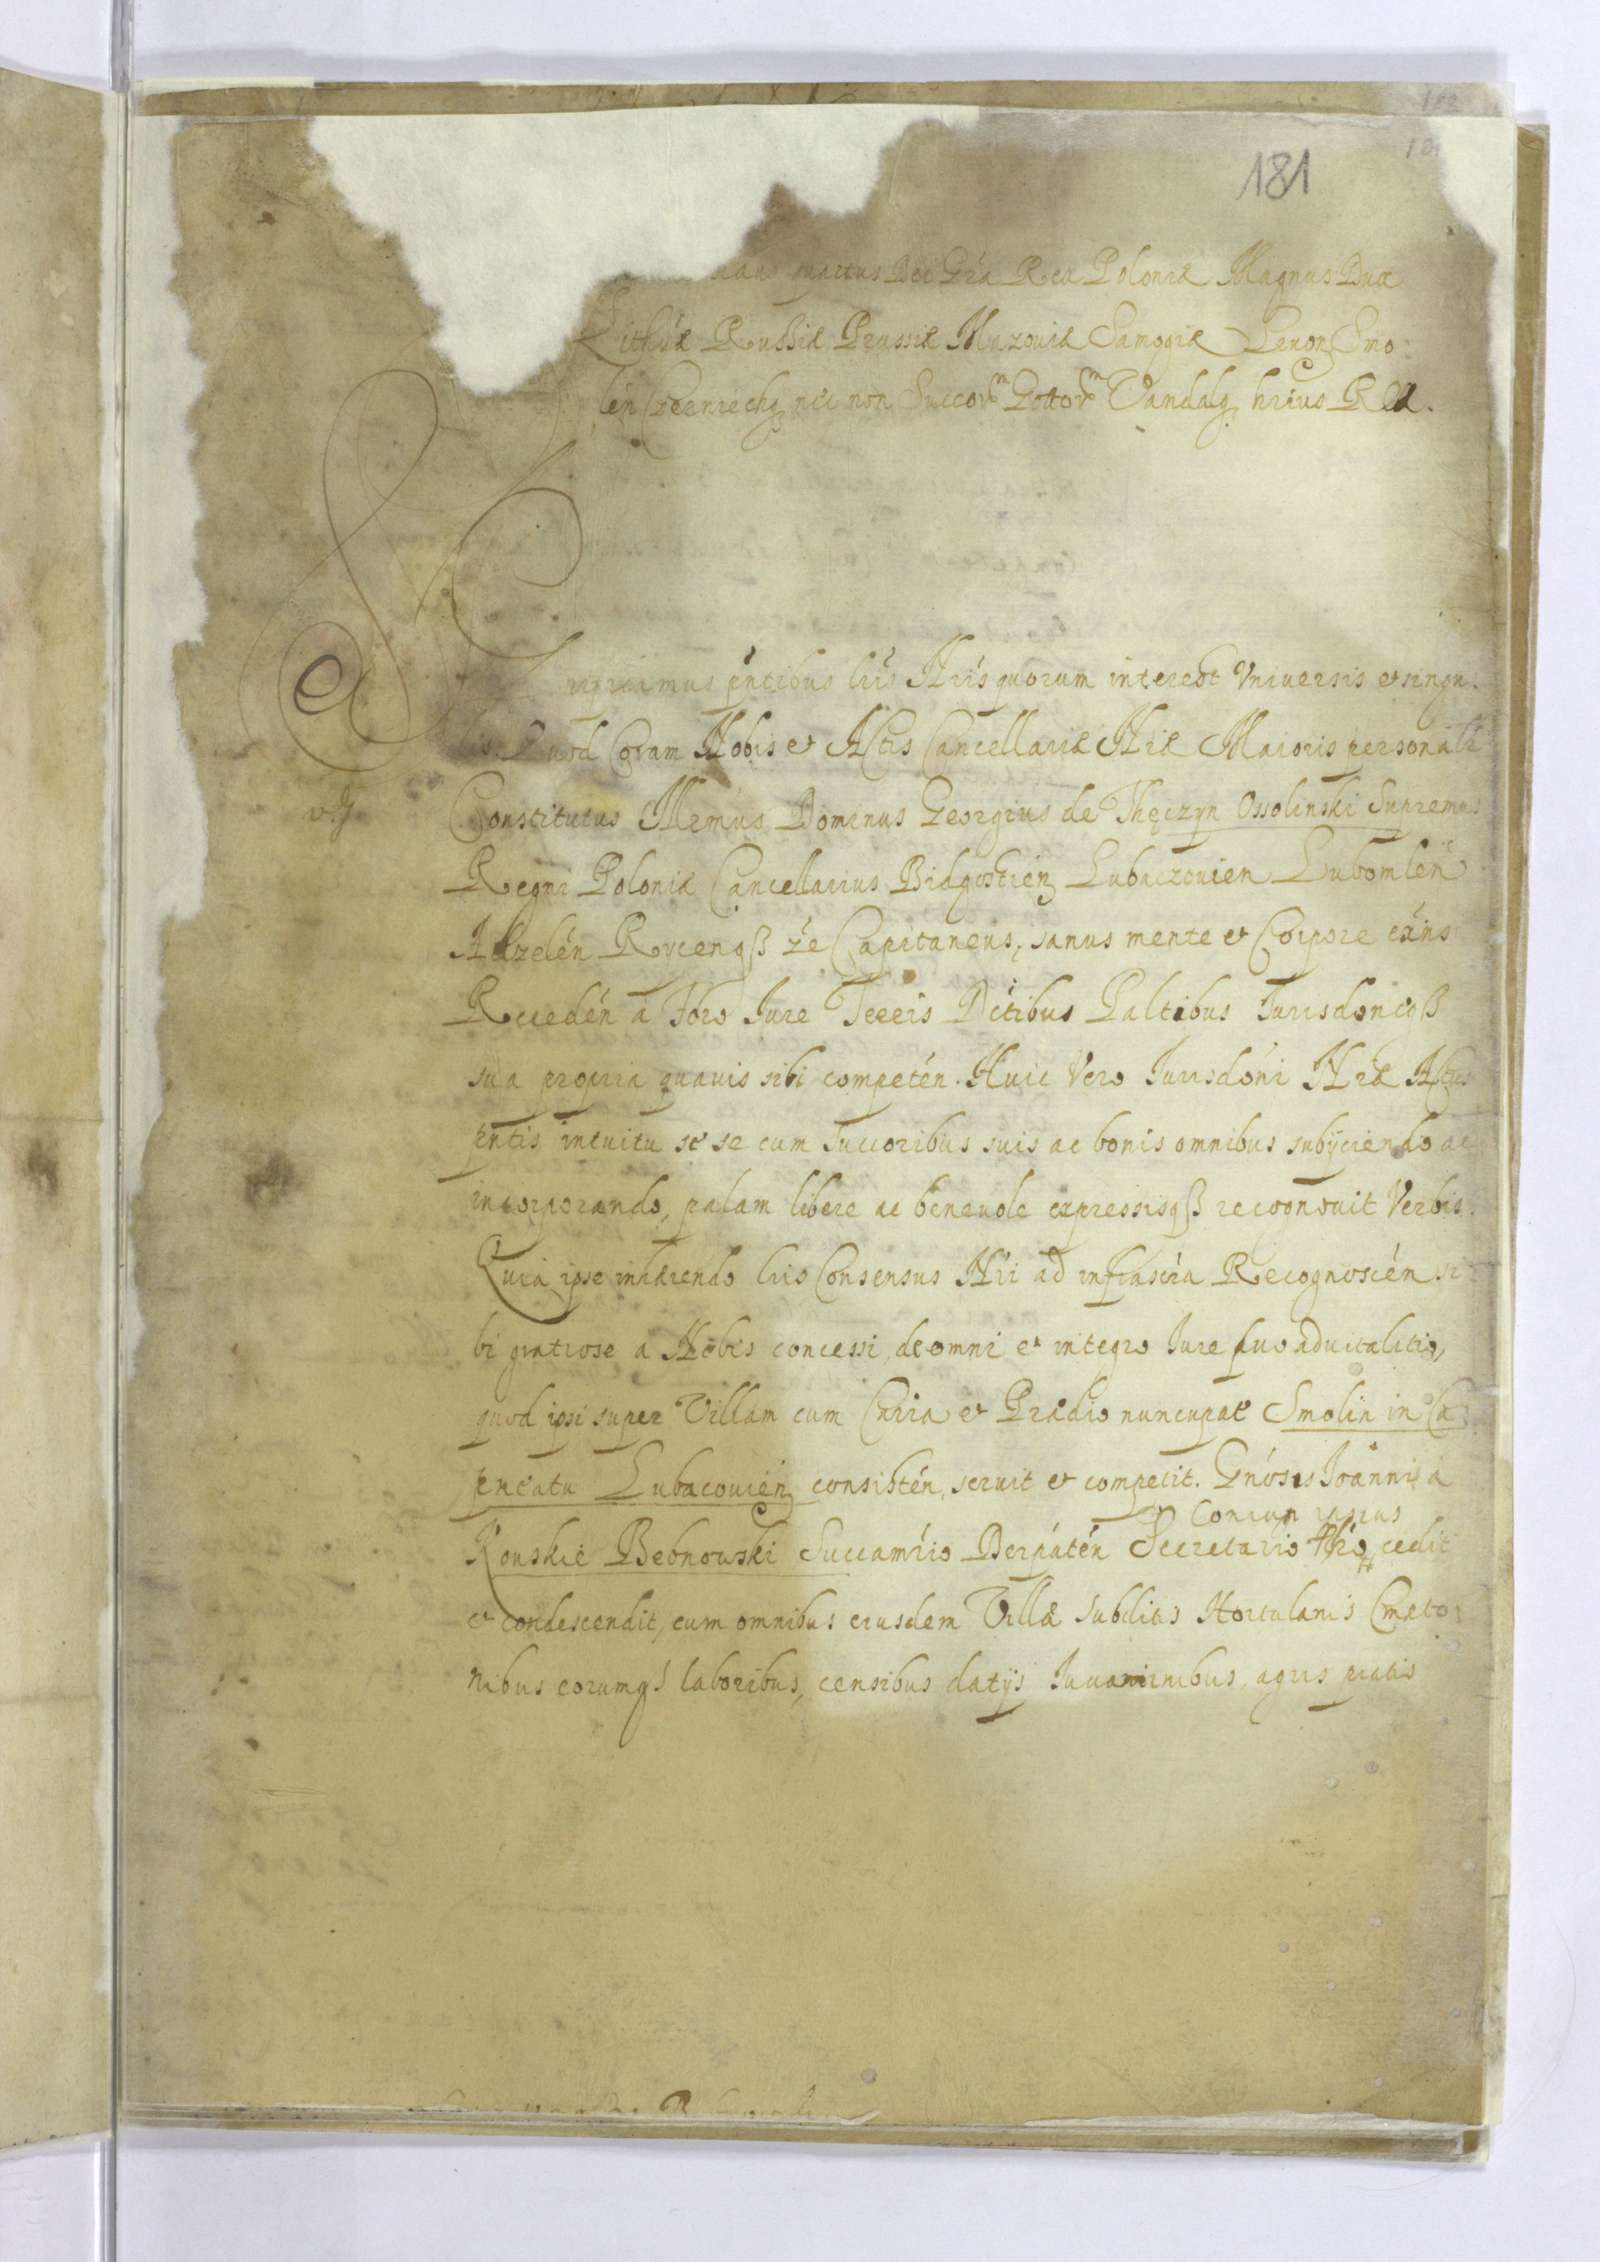 181
slaus quartus Dei Gra Rex Poloniæ Magnus Dux
Lithuæ Russiæ Prussiæ Mazouiæ Samogiæ Liuonz Smo:
len Czerniechz nec non Succorm Gottorm Vandalz hrius Rex.
significamus pntibus lris Nris quorum interest Vniuersis et singu:
lis. Quod Coram Nobis et Actis Cancellariæ Nræ Maioris personalr
Constitutus Illrmus Dominus Georgius de Thęczyn Ossolinski Supremus
Regni Poloniæ Cancellarius Bidgostienz Lubaczouien Lubomlen
Adzelen Ryczenqß ze Capitaneus, sanus mente et Corpore exins
Receden a Foro Jure Terris Dctibus Paltibus Jurisdoneqß
sua propria quauis sibi competen. Huic Vero Jurisdoni Nræ Actus
pntis intuitu se se cum succoribus suis ac bonis omnibus subijciendo ac
incorporando, palam libere ac beneuole expressisqß recognouit Verbis.
Quia ipse inhærendo lris Consensus Nri ad infrascra Recognoscen si
bi gratiose a Nobis concessi, de omni et integro Jure suo aduitalitio,
quod ipsi super Villam cum Curia et Prædio nuncupat Smolin in Ca
pneatu Lubacouienz consisten, seruit et competit. Gnoso Joannis a
Coniun ipsius
Konskie Bebnowski Succamrio Derpaten Secretario Nro cedit
et condescendit, cum omnibus eiusdem Villæ subditis Hortulanis Cmeto:
nibus eorumqß laboribus, censibus datijs Juuaminibus, agris pratis